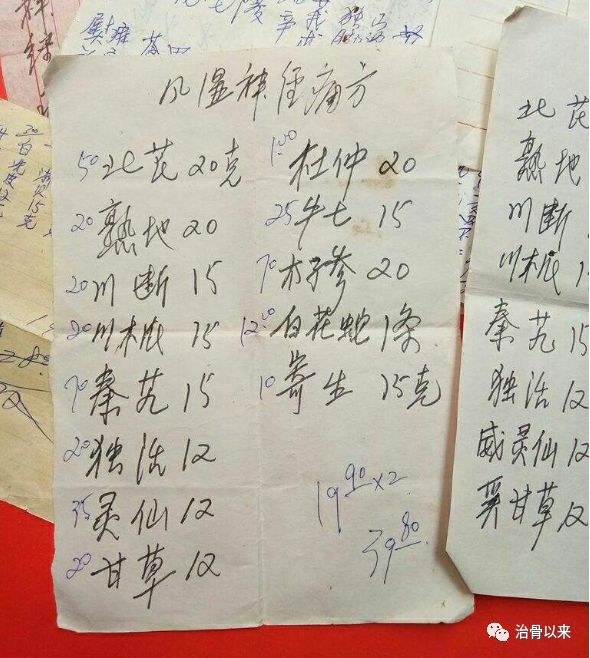 风湿神经痛方
50 北芪 20克
20 熟地 20
20 川断 15
20 川木瓜 15
70 秦艽 15
20 独活 12
35 灵仙 12
20 甘草 12
1.00 杜仲 20
25 牛七 15
70 参 20
12.00 白花蛇 1条
10 寄生 15克
19.90 x2
39.80
北芪
熟地
川断
川木瓜 1
秦艽 15
独活 12
威灵仙 12
甘草 12
治骨以来